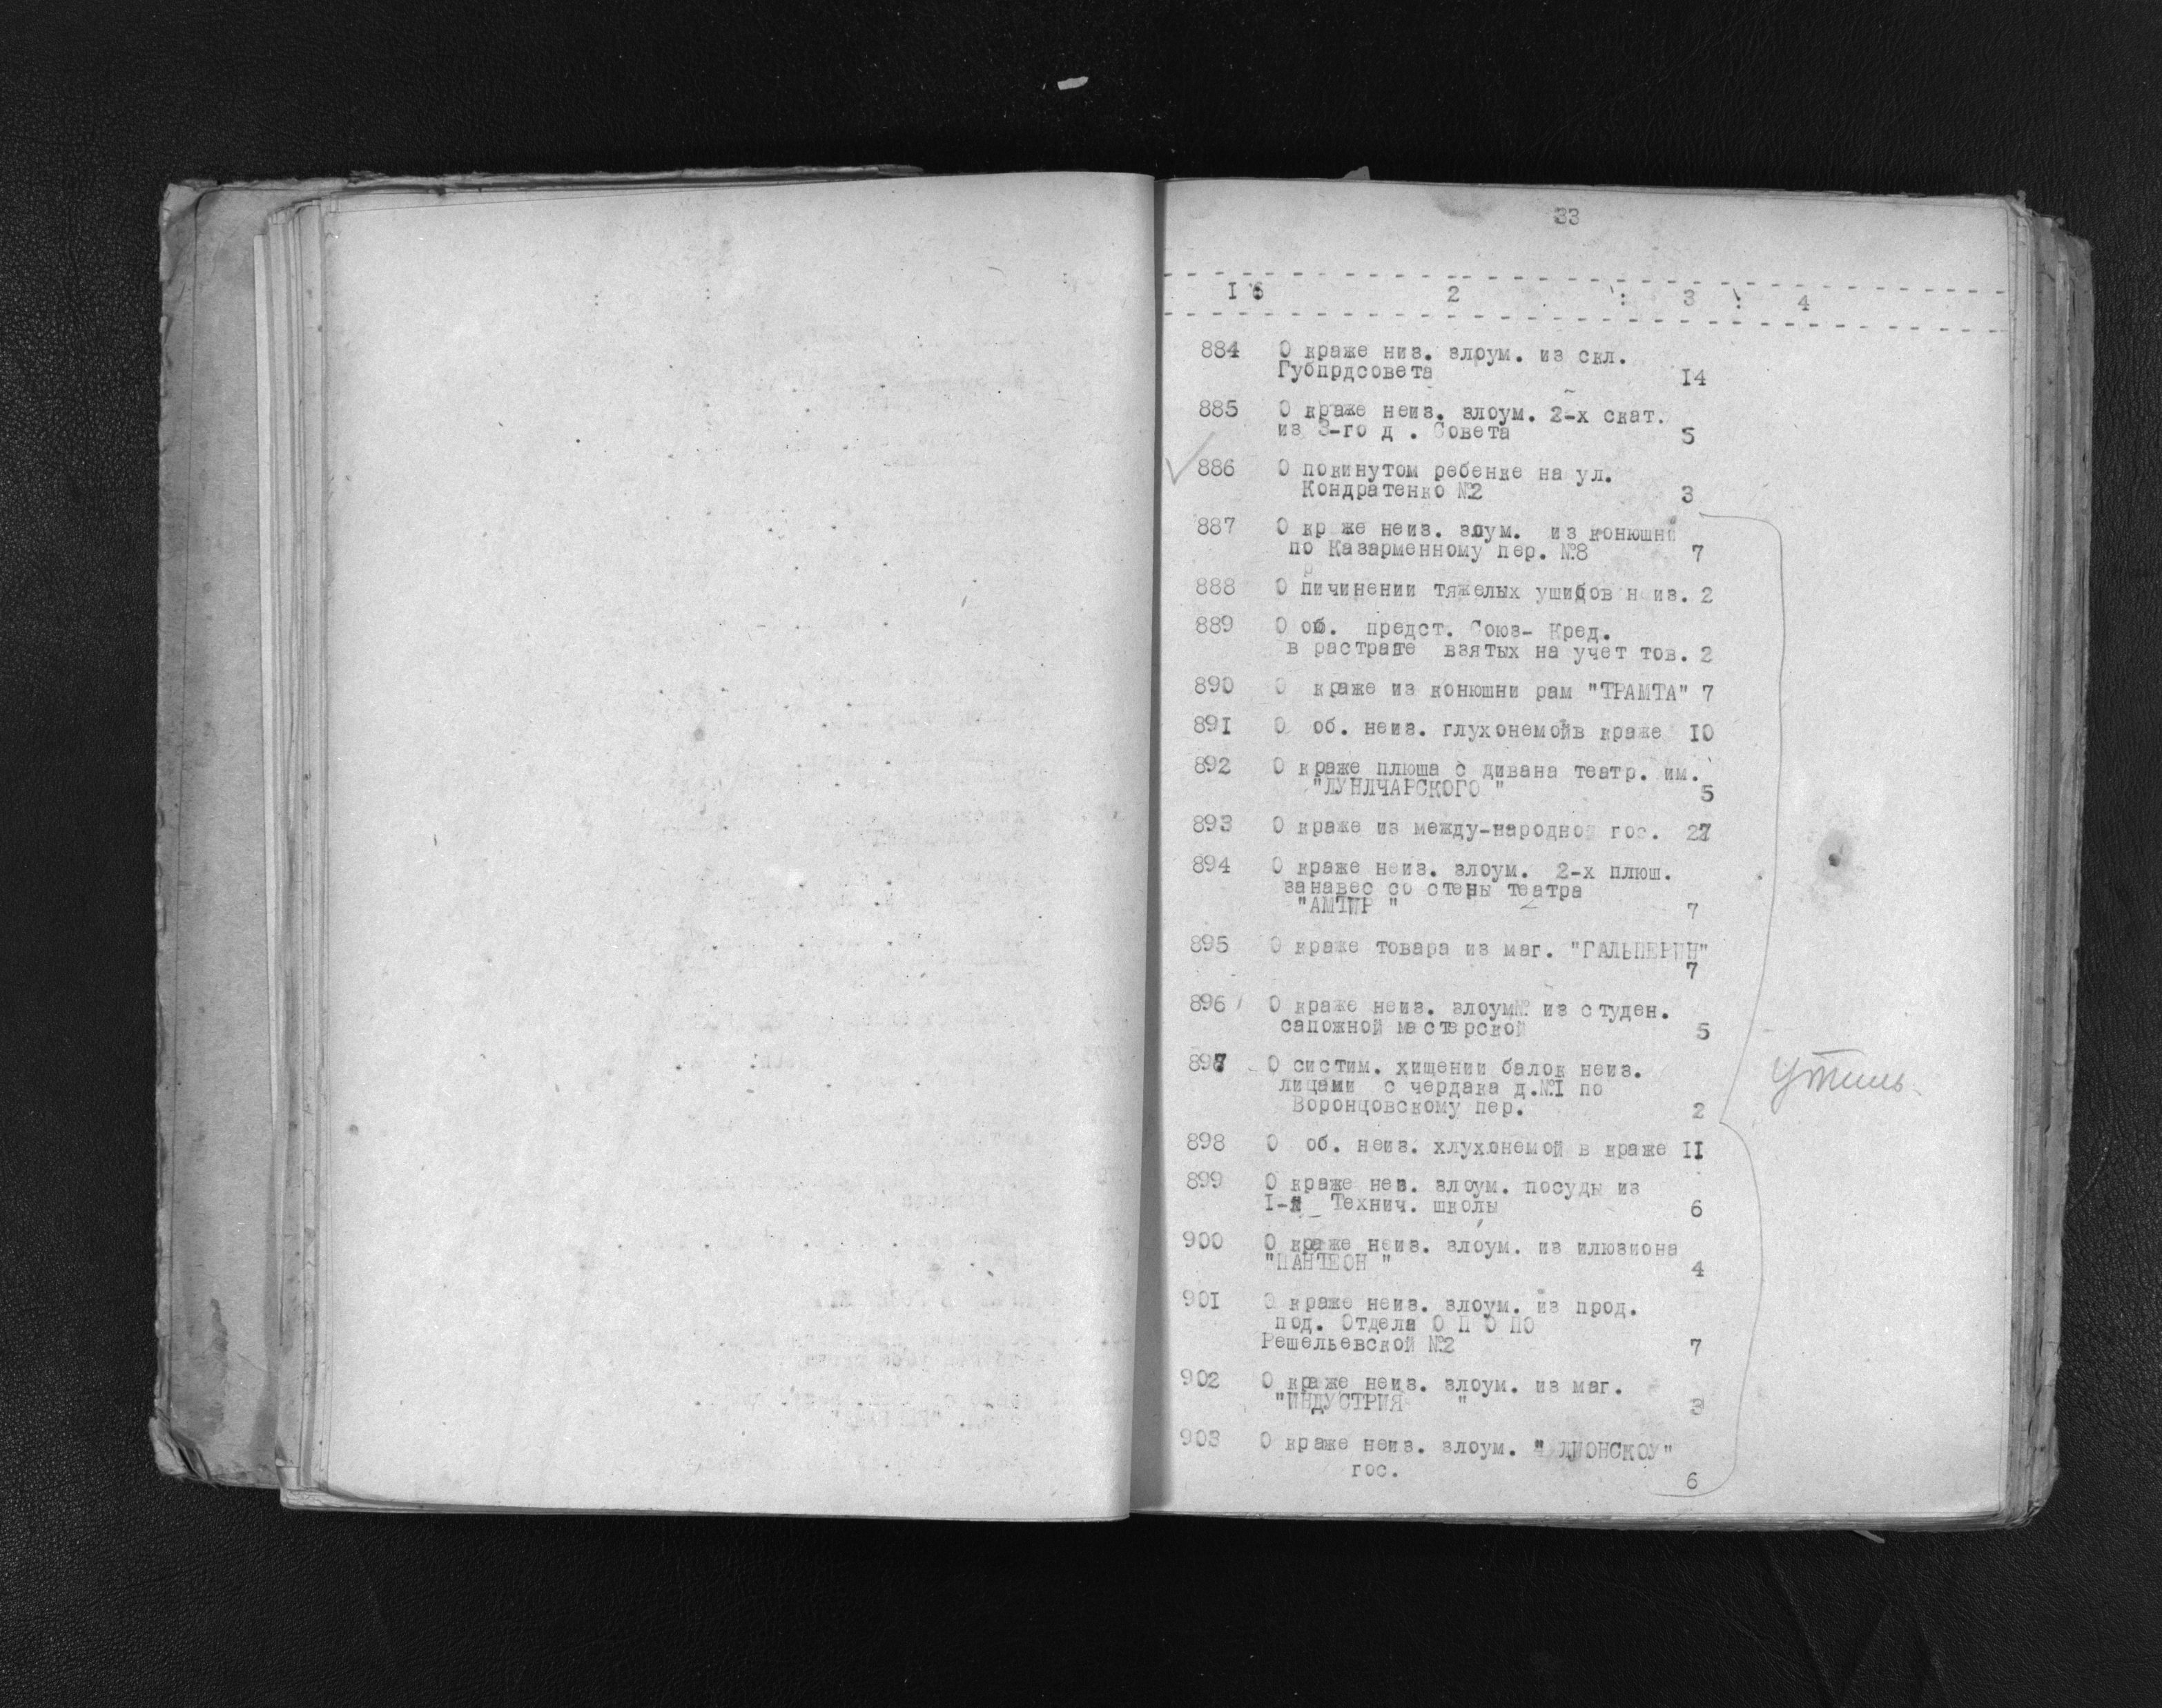 33
I 6 2 : 3 : 4
884 О краже низ. злоум. из скл.
Губпрдсовета 14
885 О краже неиз. злоум. 2-х скат.
из 3-го д . Совета 5
886 О покинутом ребенке на ул.
Кондратенко №2 3
887 О кр же неиз. злум. из конюшни
по Казарменному пер. №8 7
888 О пичинении тяжелых ушибов н из. 2
889 О об. предст. Союз- Кред.
в растрате взятых на учет тов. 2
890 О краже из конюшни рам "ТРАМТА" 7
891 О об. неиз. глухонемойв краже IO
892 О краже плюша с дивана театр. им.
"ЛУНЛЧАРСКОГО " 5
893 О краже из между-народной гос. 27
894 О краже неиз. злоум. 2-х плюш.
занавес со стены театра
"АМПИР " 7
895 О краже товара из маг. "ГАЛЬПЕРИН"
7
896 О краже неиз. злоум. из студен.
сапожной мастерской 5
897 О систим. хищении балок неиз.
лицами с чердака д.№I по
Воронцовскому пер. 2
898 О об. неиз. хлухонемой в краже II
899 О краже неи. злоум. посуды из
I-й Технич. школы 6
900 О краже неиз. злоум. из илюзиона
"ПАНТЕОН " 4
90I О краже неиз. злоум. из прод.
под. Отдела О П О ПО
Решельевской №2 7
902 О краже неиз. злоум. из маг.
"ИНДУСТРИЯ " 3
903 О краже неиз. злоум. " ЛИОНСКОУ"
гос. 6
Утиль